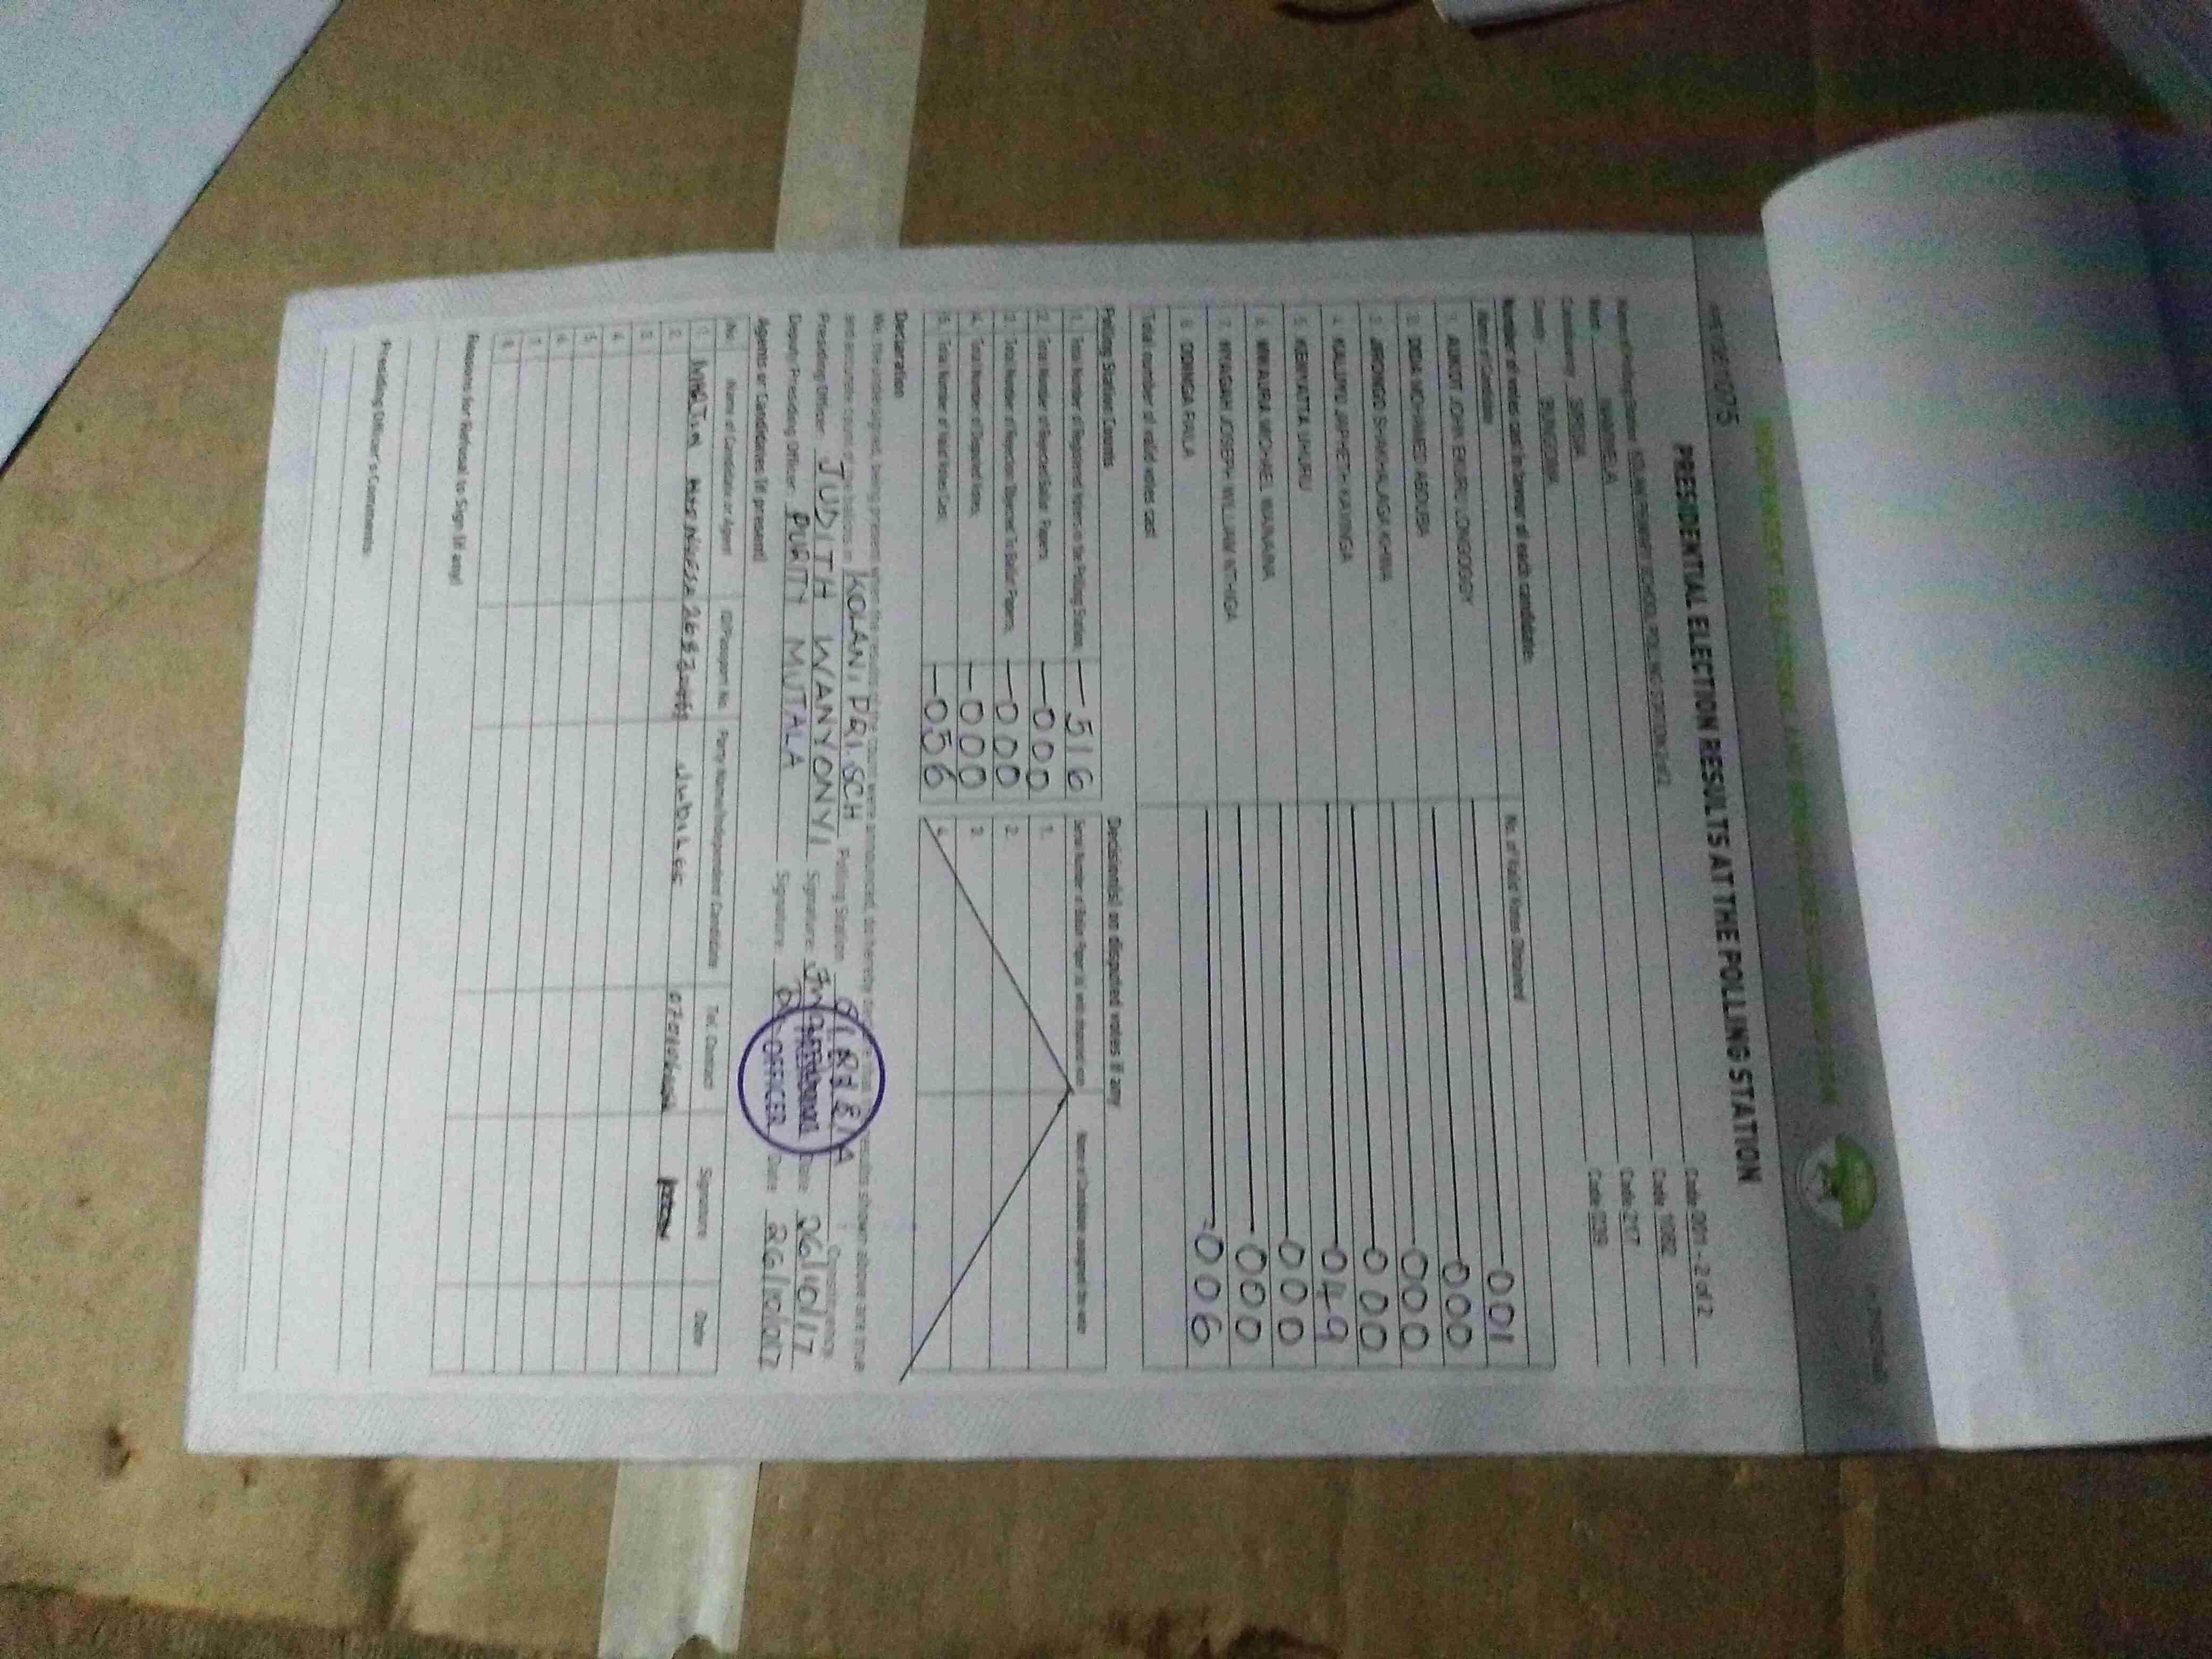 INDEPENDENT ELECTORAL AND BOUNDARIES COMMISSION
PRESIDENTIAL ELECTION RESULTS AT THE POLLING STATION
Name of Polling Station KOLANI PRIMARY SCHOOL POLLING STATION 2 of 2 Code 001 - 2 of 2
Ward Code 1082
Constituency SIRISIA Code 217
County BUNGOMA Code 039
Number of votes cast in favour of each candidate:
Name of Candidate No. of Valid Votes Obtained
1. AUKOT JOHN EKURU LONGOGGY 001
2. DIDA MOHAMED ABDUBA 000
3. JIRONGO SHAKHALAGA KHWA 000
4. KALUYU JAPHETH KAVINGA 000
5. KENYATTA UHURU 049
6. MWAURA MICHAEL WAINAINA 000
7. NYAGAH JOSEPH WILLIAM NTHIGA 000
8. ODINGA RAILA 006
Total number of valid votes cast
Polling Station Counts Decision(s) on disputed votes if any
1. Total Number of Registered Voters in the Polling Station 516
2. Total Number of Rejected Ballot Papers 000 1.
3. Total Number of Rejection Objected To Ballot Papers 000 2.
4. Total Number of Disputed Votes 000 3.
5. Total Number of Valid Votes Cast 056 4.
Declaration
We, the undersigned, being present when the results of the count were announced, do hereby results shown above are true
and accurate count of the ballots in KOLANI PRI. SCH Polling Station SIRISIA Constituency
Presiding Officer: JUDITH WANYONYI Signature: Date 26/10/17
Deputy Presiding Officer: PURITY MUTALA Signature: Date 26/10/2017
OFFICER
Agents or Candidates (if present)
No Name of Candidate or Agent ID/Passport No. Party Name/Independent Candidate Tel. Contact Signature Date
1. Jubilee
2.
3.
4.
5.
6.
7.
8.
Reasons for Refusal to Sign (if any)
Presiding Officer's Comments: